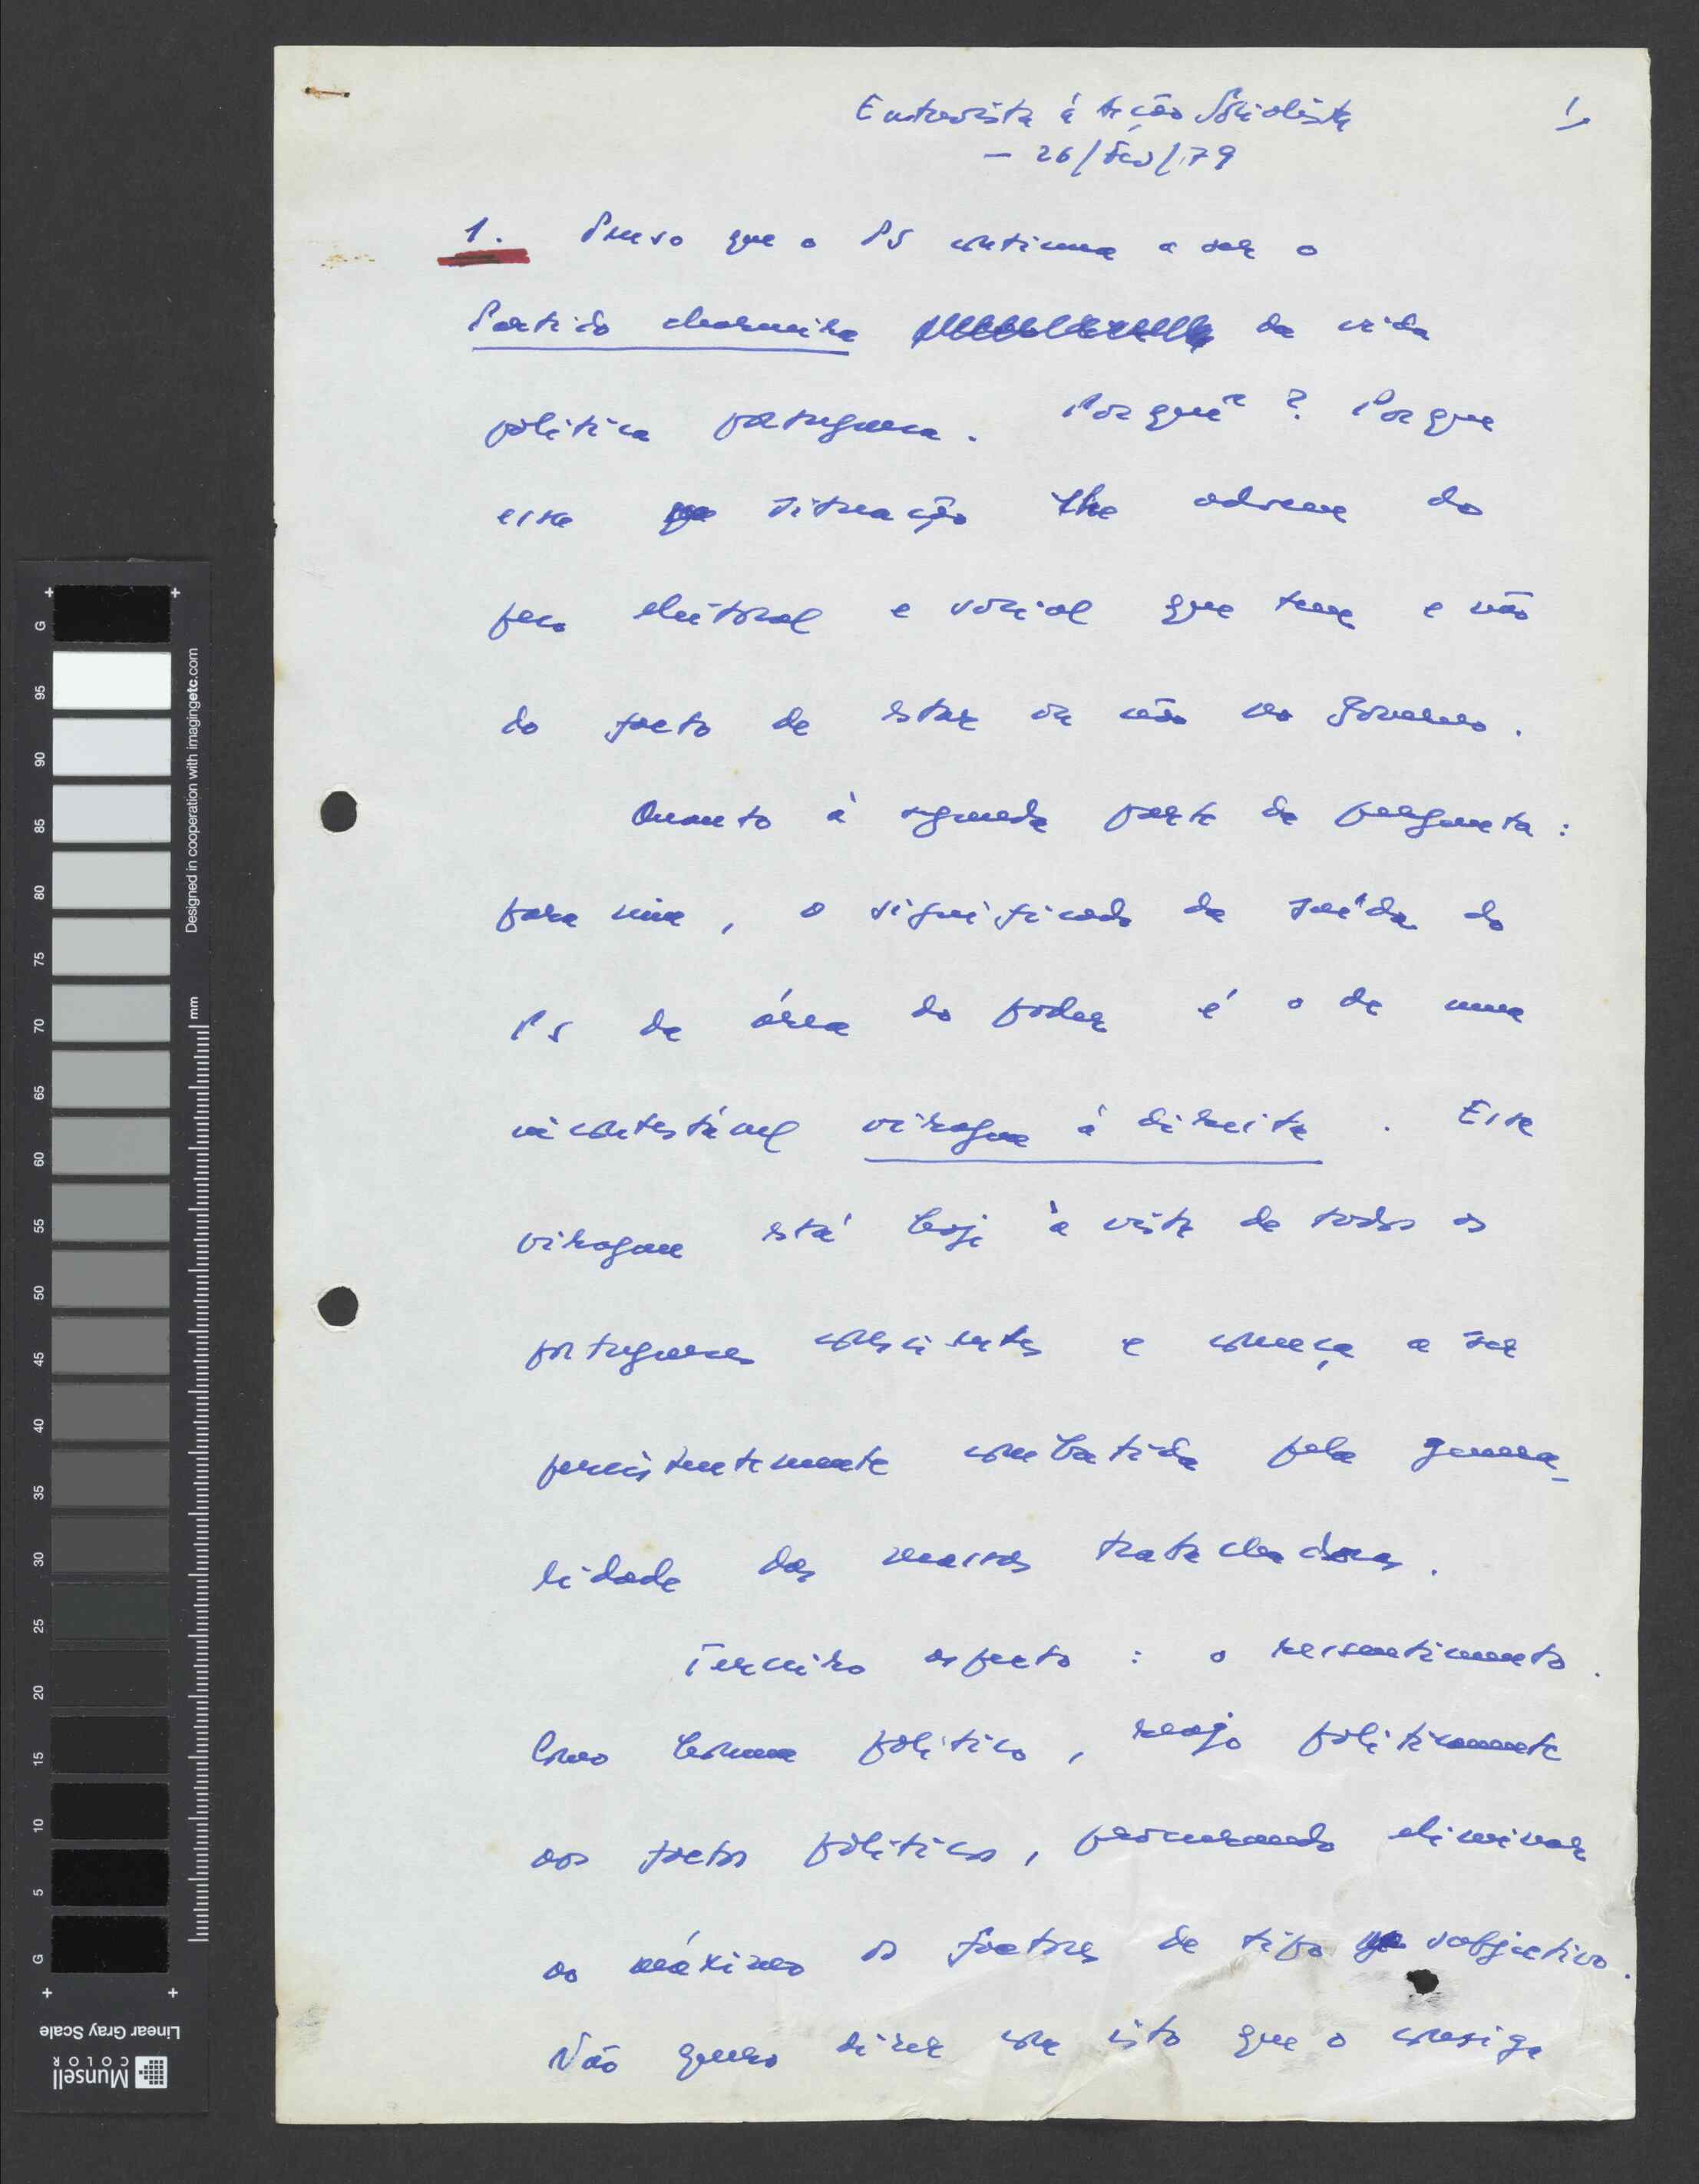 Entrevista à Acção Socialista
1/
- 26/Fev/79
1. Penso que o PS continua a ser o
Partido charneira da vida
política portuguesa. Porquê? Porque
essa situação lhe advem do
peso eleitoral e social que tem e não
do facto de estar ou não no Governo.
Quanto à segunda parte da pergunta:
para mim, o significado da saída do
PS da área do poder é o de uma
incontestável viragem à direita. Essa
viragem está hoje à vista de todos os
portugueses conscientes e começa a ser
persistentemente combatida pela genera-
lidade das massas trabalhadoras.
Terceiro aspecto: o ressentimento.
Como homem político, reajo politicamente
aos factos políticos, procurando eliminar
ao máximo os factores de tipo subjectivo.
Não quero dizer com isto que o consiga
G 95 90 85 80 75 70 65 60 55 50 45 40 35 30 25 20 15 10 5 G
Designed in cooperation with imagingetc.com
mm
Linear Gray Scale
Munsell
COLOR